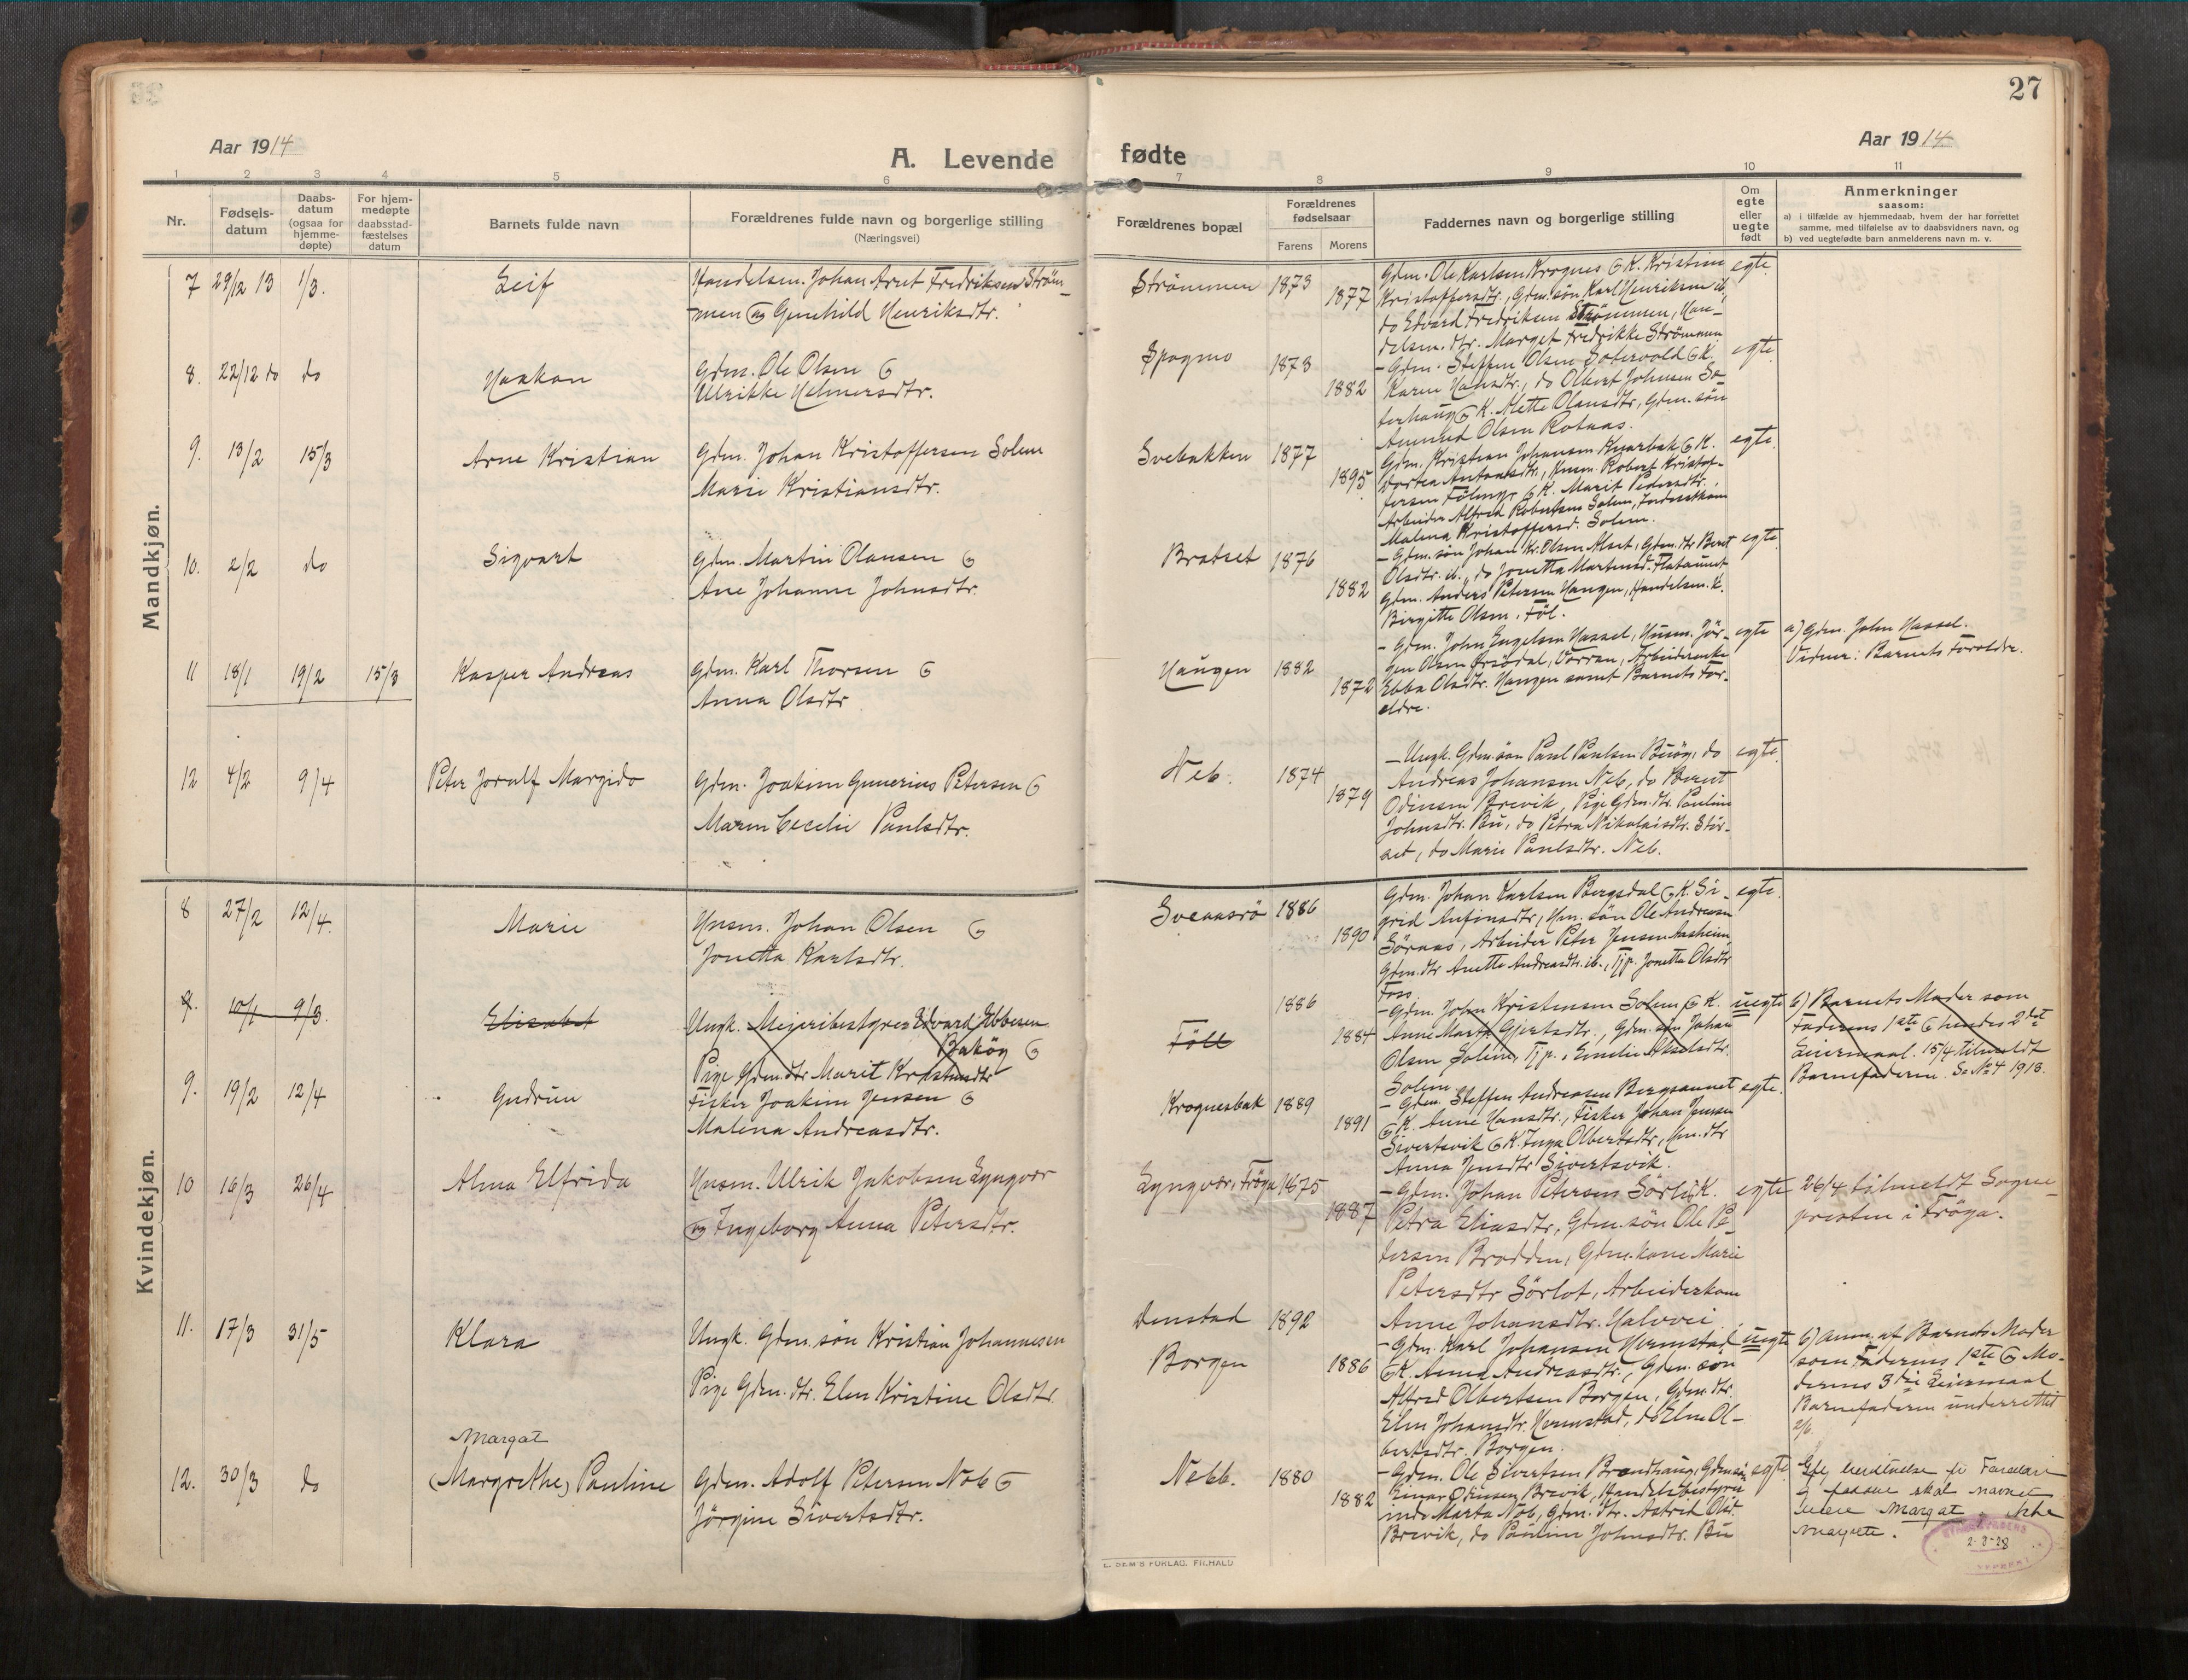 27
Aar 1914
A. Levende
fødte
Aar 1914
1 2 3 4 5 6 7 8 9 10 11
Nr.
Fødsels-
datum
Daabs-
datum
(ogsaa for
hjemme-
døpte)
For hjem-
medøpte
daabsstad-
fæstelses
datum
Barnets fulde navn
Forældrenes fulde navn og borgerlige stilling
(Næringsvei)
Forældrenes bopæl
Forældrenes
fødselsaar
Farens
Morens
Faddernes navn og borgerlige stilling
Om
egte
eller
uegte
født
Anmerkninger
saasom:
a) i tilfælde av hjemmedaab, hvem der har forrettet
samme, med tilføielse av to daabsvidners navn, og
b) ved uegtefødte barn anmelderens navn m. v.
Mandkjøn.
7 29/12 13 1/3. Leif
Handelsm. Johan Arnt Fredriksen Ström-
men og Gunhild Henriksdtr.
Strömmen 1873 1877
Gdm. Ole Karlsen Krognes & K. Kristine
Kristoffersdtr., Gdm. sön Karl Henriksen ib,
do Edvard Fredriksen Strömmen, Han-
delsm. dtr. Marget Fredrikke Strömmen
egte
8. 22/12 do do Haakon
Gdm. Ole Olsen &
Ulrikke Helmersdtr.
Spogmo 1873 1882
- Gdm. Steffen Olsen Sætervold & K.
Karen Hansdtr., do Olbert Johnsen Sæ-
terhaug & K. Mette Olausdtr, Gdm. sön
Olsen Rotaas.
egte
9. 13/2 15/3 Arne Kristian
Gdm. Johan Kristoffersen Solem
Marie Kristiansdtr.
Svebakken 1877 1895
Gdm. Kristian Johansen Kvarbak & K.
Dortea Antonsdtr., Husm. Robert Kristof-
fersen Föling & K. Marit Pedersdtr.
Arbeider Alfred Robertsen Solem,
Malena Kristoffersd. Solem.
egte
10. 2/2 do Sigvart
Gdm. Martin Olausen &
Ane Johanne Johnsdtr.
Bratset 1876 1882
- Gdm. sön Johan Kr. Olsen Alset, Gdm. dtr Berit
Olsdtr. ib., do Jonetta Martinsd. Flataunet
Gdm. Anders Petersen Haugen, Handelsm. K.
Birgitte Olsen, Föl.
egte
11 18/1 19/2 15/3 Kasper Andreas
Gdm. Karl Thorsen &
Anna Olsdtr
Haugen 1882 1872
- Gdm. John Engelsen Hassel, Husm. Jör-
gen Olsen Örsödal, Vorran, Arbeiderenke
Ebba Olsdtr. Haugen samt Barnets For-
ældre.
egte
a) Gdm. John Hassel.
Vidner: Barnets Forældre.
12 4/2 9/4 Peter Joralf Margido
Gdm. Joakim Gunerius Petersen &
Maren Cecelie Paulsdtr.
Neb. 1874 1879
- Ungk. Gdm. sön Paul Paulsen Buöy, do
Andreas Johansen Neb, do Bernt
Odinsen Brevik, Pige Gdm. dtr. Pauline
Johnsdtr. Bu, do Petra Nikolaisdtr. Stör-
set, do Marie Paulsdtr. Neb.
egte
Kvindekjøn.
8 27/2 12/4. Marie
Husm. Johan Olsen &
Jonetta Karlsdtr.
Sveaasrö 1886 1890
Gdm. Johan Karlsen Bergsdal & K. Si-
grid Anfinsdtr, Hm. sön Ole Andreasen
Söraas, Arbeider Peter Jensen Aasheim,
Gdm. dtr Anette Andreasdtr. ib., Tjp. Jonetta Olsdtr
Foss
egte.
9. 10/1 9/3. Elisabet
Ungk. Meieribestyrer Edvard Ebbesen
Baköy &
Pige Gdm. dtr Marit Kristensdtr
Föll 1886 1884
- Gdm. John Kristensen Solem & K.
Anne Marta Gjertsdtr., Gdm. sön Johan
Olsen Solem, Tjp. Emelie Akselsdtr.
Solem
uegte
b) Barnets Moder som
Faderens 1ste & hendes 2det
Leiermaal. 15/4 tilmeldt
Barnefaderen. Se No 4 1913.
9. 19/2 12/4 Gudrun
Fisker Joakim Jensen &
Malena Andreasdtr.
Krognesbak 1889 1891
- Gdm. Steffen Andreasen Bergsaunet
& K. Anne Hansdtr., Fisker Johan Jensen
Sivertsvik & K. Inga Olbertsdtr, Hm. dtr
Anna Jensdtr Sivertsvik.
egte.
10 16/3 26/4 Alma Elfrida
Husm. Ulrik Jakobsen Lyngvær
og Ingeborg Anna Petersdtr.
Lyngvær, Fröya 1875 1887
- Gdm. Johan Petersen Sörli & K.
Petra Eliasdtr, Gdm. sön Ole Pe-
tersen Brodden, Gdm. kone Marie
Petersdtr Sörlot, Arbeiderkone
Anne Johansdtr. Halvvei
egte
26/4 tilmeldt Sogne-
presten i Fröya.
11. 17/3 31/5 Klara
Ungk. Gdm. sön Kristian Johannesen
Pige Gdm. dtr. Elen Kristine Olsdtr
Denstad
Borgen
1892 1886
- Gdm. Karl Johansen Hermstad
& K. Anna Andreasdtr., Gdm. sön
Alfred Olbertsen Borgen, Gdm. dtr.
Elen Johansdtr. Hermstad, do Elen Ol-
bertsdtr. Borgen.
uegte
b) Anm. af Barnets Moder
som Faderens 1ste & Mo-
derens 3die Leiermaal
Barnefaderen underrettet
2/6.
12. 30/3 do
Margat
(Margrethe) Pauline
Gdm. Adolf Petersen Neb &
Jörgine Sivertsdtr.
Nebb. 1880 1882
- Gdm. Ole Sivertsen Brandhaug, Gdm. sön
Einar Odinsen Brevik, Handelsbestyrer-
inde Marta Neb, Gdm. dtr. Astrid Olsd.
Brevik, do Pauline Johnsdtr. Bu
egte.
skal navnet
være Margat, ikke
Margrete.
2-3-28
E. SEM'S FORLAG, FR.HALD